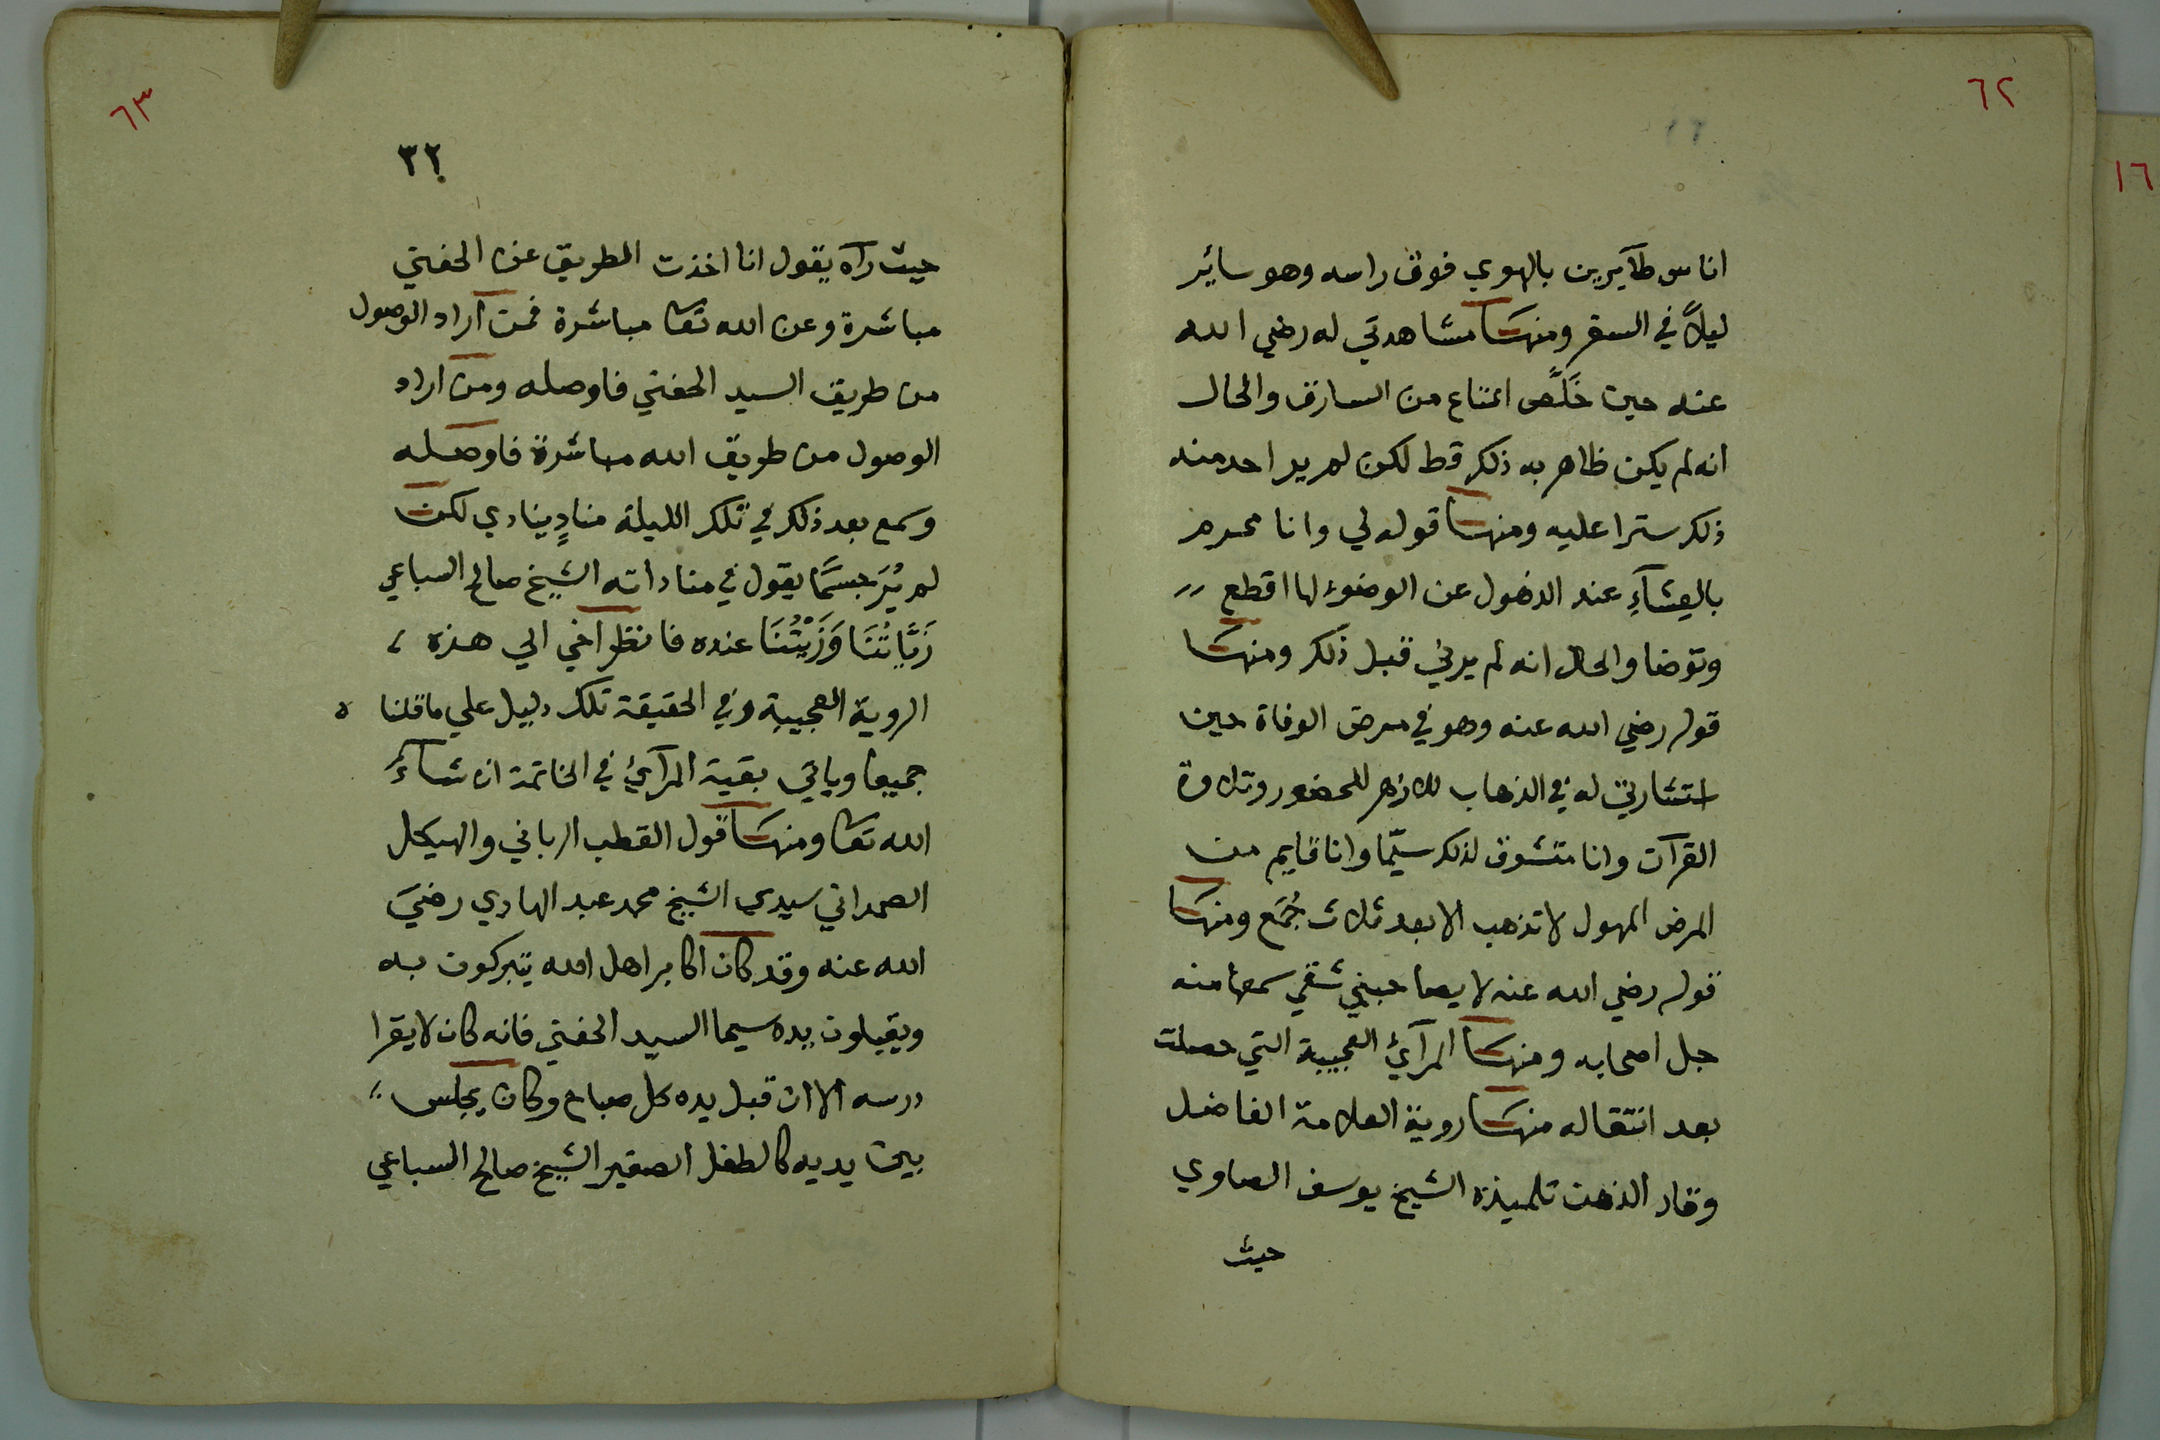 ٦٢
اناس طآيرين بالهوي فوق راسه وهو سائر
ليلاً في السفر ومنها مشاهدتي له رضي الله
عنه حين خَلَّص امتاع من السارق والحال
انه لم يكن ظاهر به ذلك قط لكن لم ير احد منه
ذلك سترا عليه ومنها قوله لي وانا محرم
بالعِشَآءِ عند الذهول عن الوضوء لها اقطع
وتوضا والحال انه لم يرني قبل ذلك ومنها
قوله رضي الله عنه وهو في مرض الوفاة حين
استشارتي له في الذهاب للازهر للحضور وتلاوة
القرآن وانا متشوق لذلك سيّما وانا قايم من
المرض المهول لا تذهب الا بعد ثلاث جُمَع ومنها
قوله رضي الله عنه لا يصاحبني شقي سمعها منه
جل اصحابه ومنها المرآئي العجيبة التي حصلت
بعد انتقاله منها روية العلامة الفاضل
وقاد الذهن تلميذه الشيخ يوسف الصاوي
حيث
١٦
٦٣
٣٢
حيث رآه يقول انا اخذت الطريق عن الحفني
مباشرة وعن الله تعا مباشرة فمن اراد الوصول
من طريق السيد الحفني فاوصله ومن اراد
الوصول من طريق الله مباشرة فاوصله
وسمع بعد ذلك في تلك الليلة منادٍ ينادي لكن
لم يُرَ جسمًا يقول في مناداته الشيخ صالح السباعي
زَيَّاتُنَا وَزَيْتُنَا عنده فانظر اخي الي هذه
الروية العجيبة وفي الحقيقة تلك دليل علي ما قلنا
جميعا وياتي بقية المرآئي في الخاتمة ان شآءَ
الله تعا ومنها قول القطب الرباني والهيكل
الصمداني سيدي الشيخ محمد عبد الهادي رضيَ
الله عنه وقد كان اكابر اهل الله يتبركون به
ويقبلون يده سيما السيد الحفني فانه كان لا يقرا
درسه الا ان قبل يده كل صباح وكان يجلس
بين يديه كالطفل الصغير الشيخ صالح السباعي